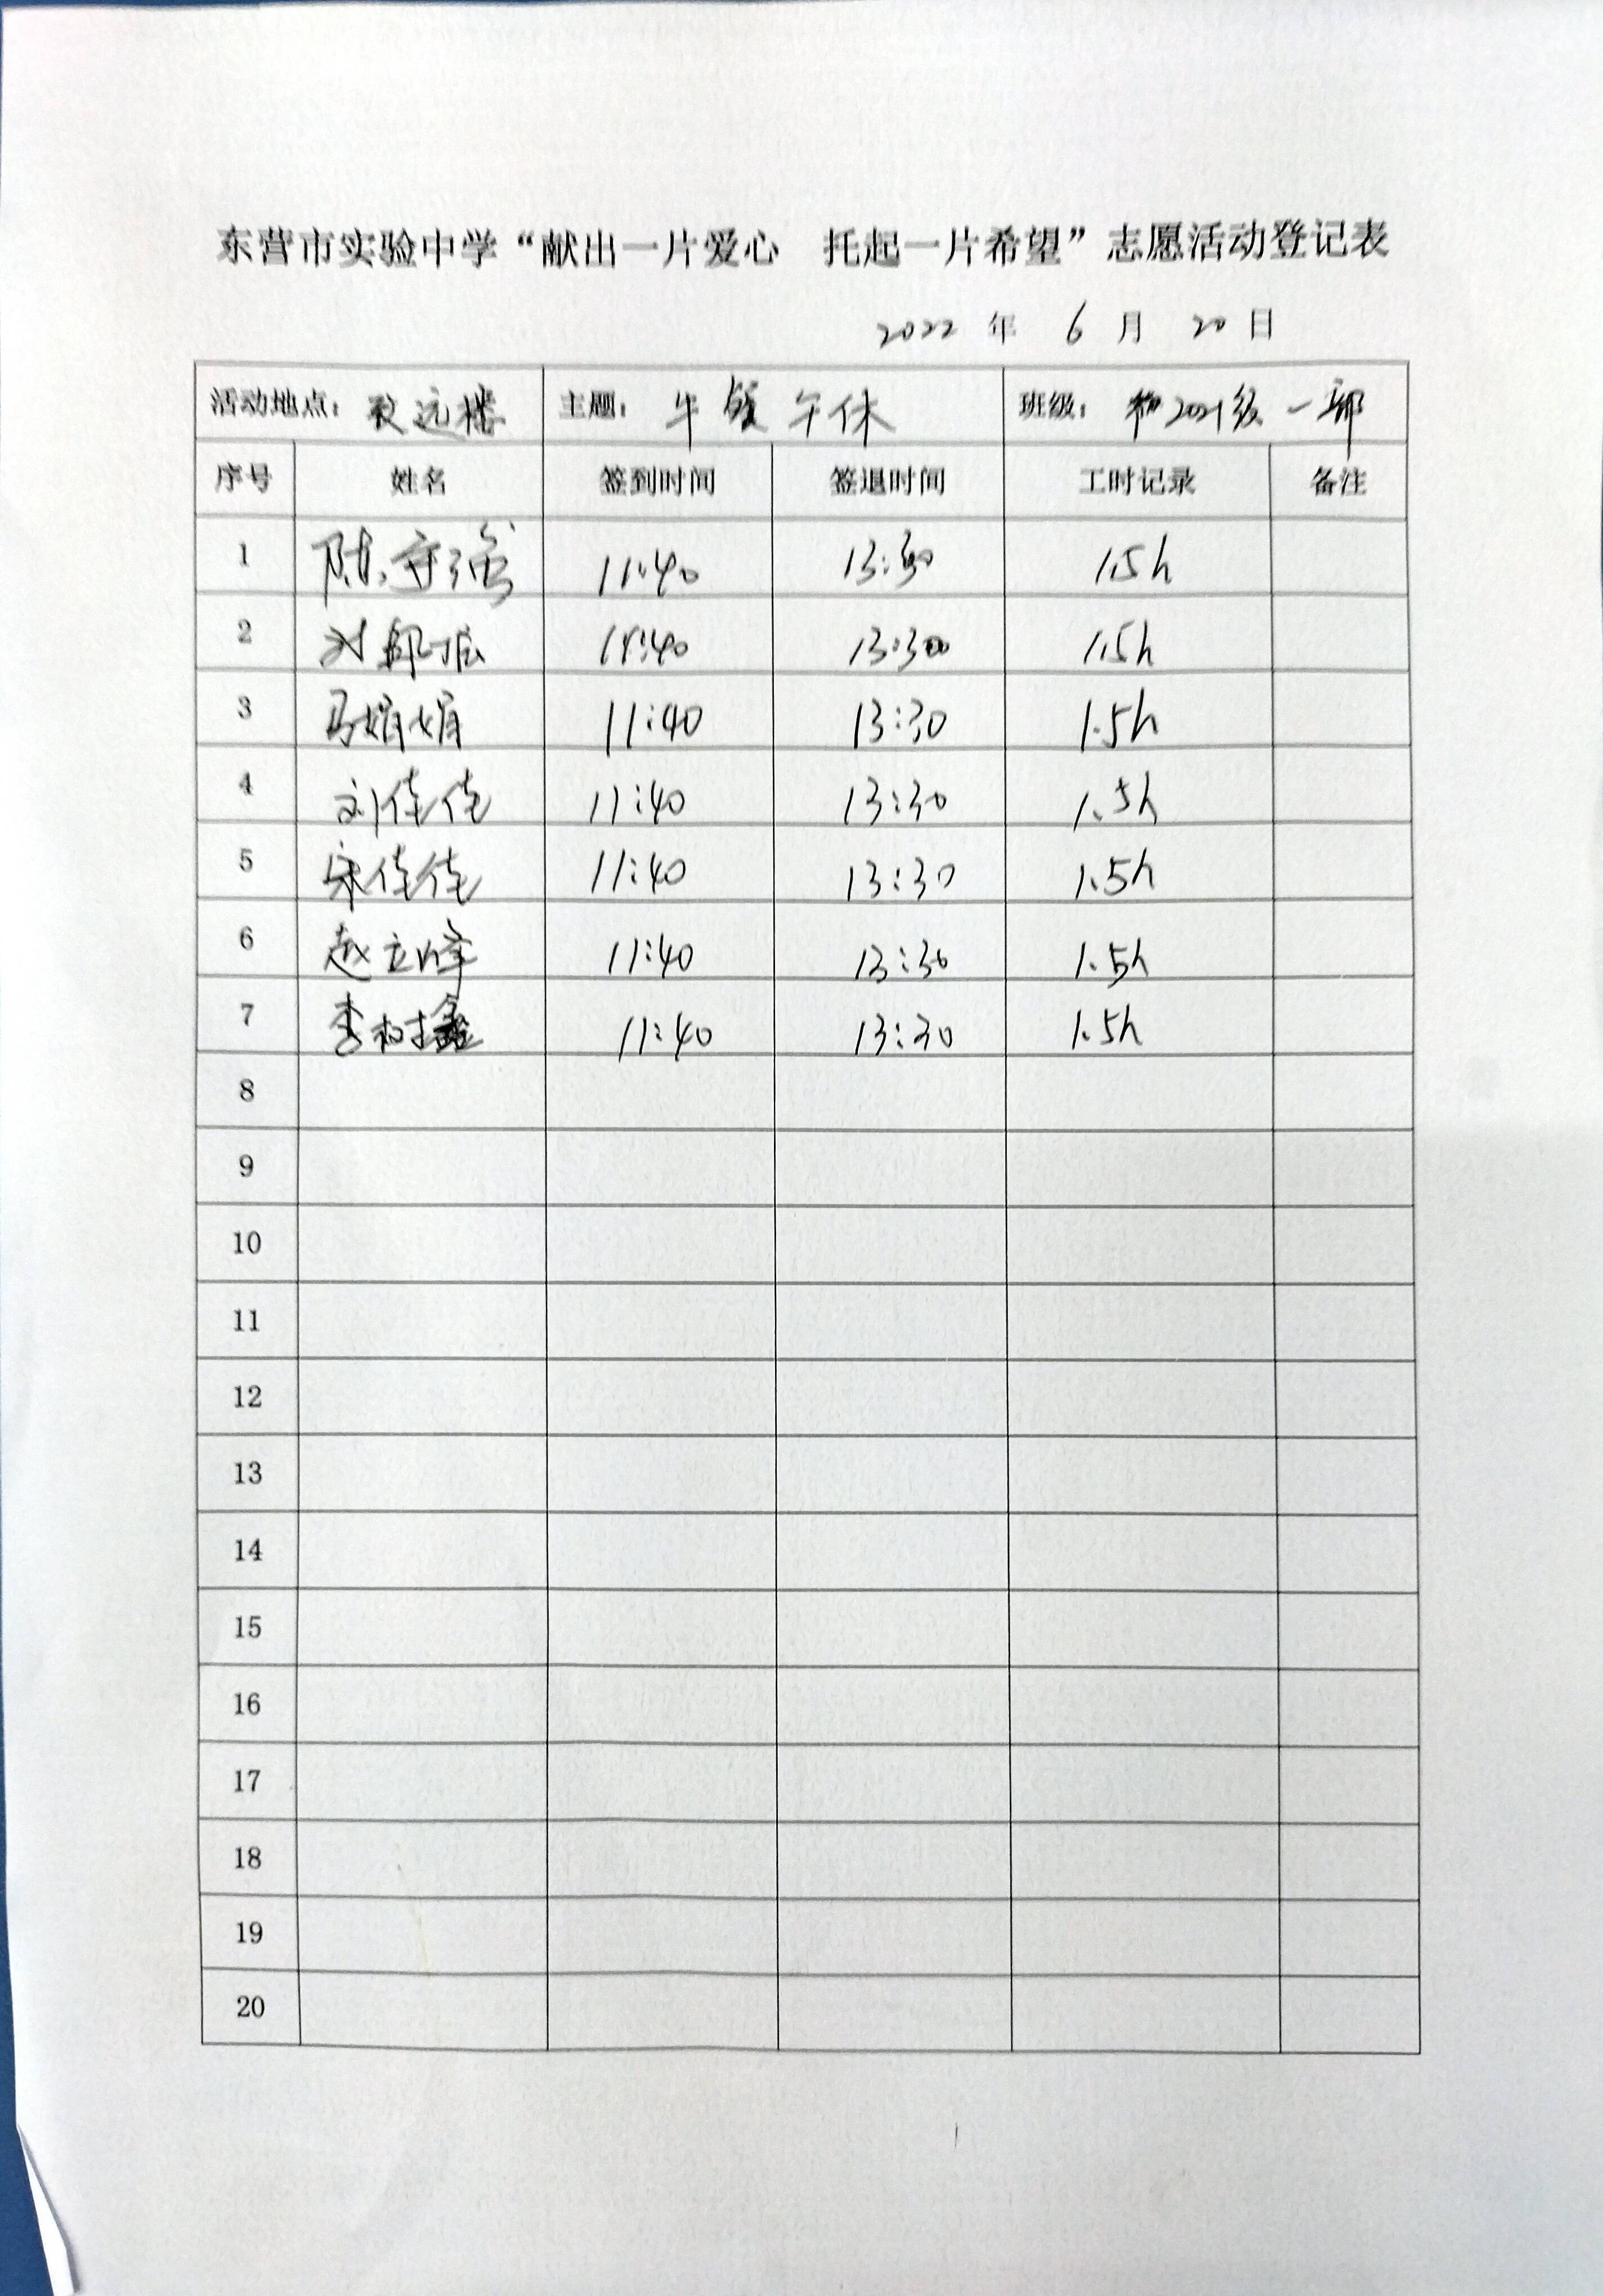 东营市实验中学“献出一片爱心 托起一片希望”志愿活动登记表
2022 年 6 月 20 日
活动地点：致远楼 主题：午餐午休 班级：2021级一部
序号 姓名 签到时间 签退时间 工时记录 备注
1 陈 11:40 13:30 1.5h
2 刘 11:40 13:30 1.5h
3 马娟娟 11:40 13:30 1.5h
4 刘佳佳 11:40 13:30 1.5h
5 宋佳佳 11:40 13:30 1.5h
6 赵立峰 11:40 13:30 1.5h
7 李树鑫 11:40 13:30 1.5h
8
9
10
11
12
13
14
15
16
17
18
19
20